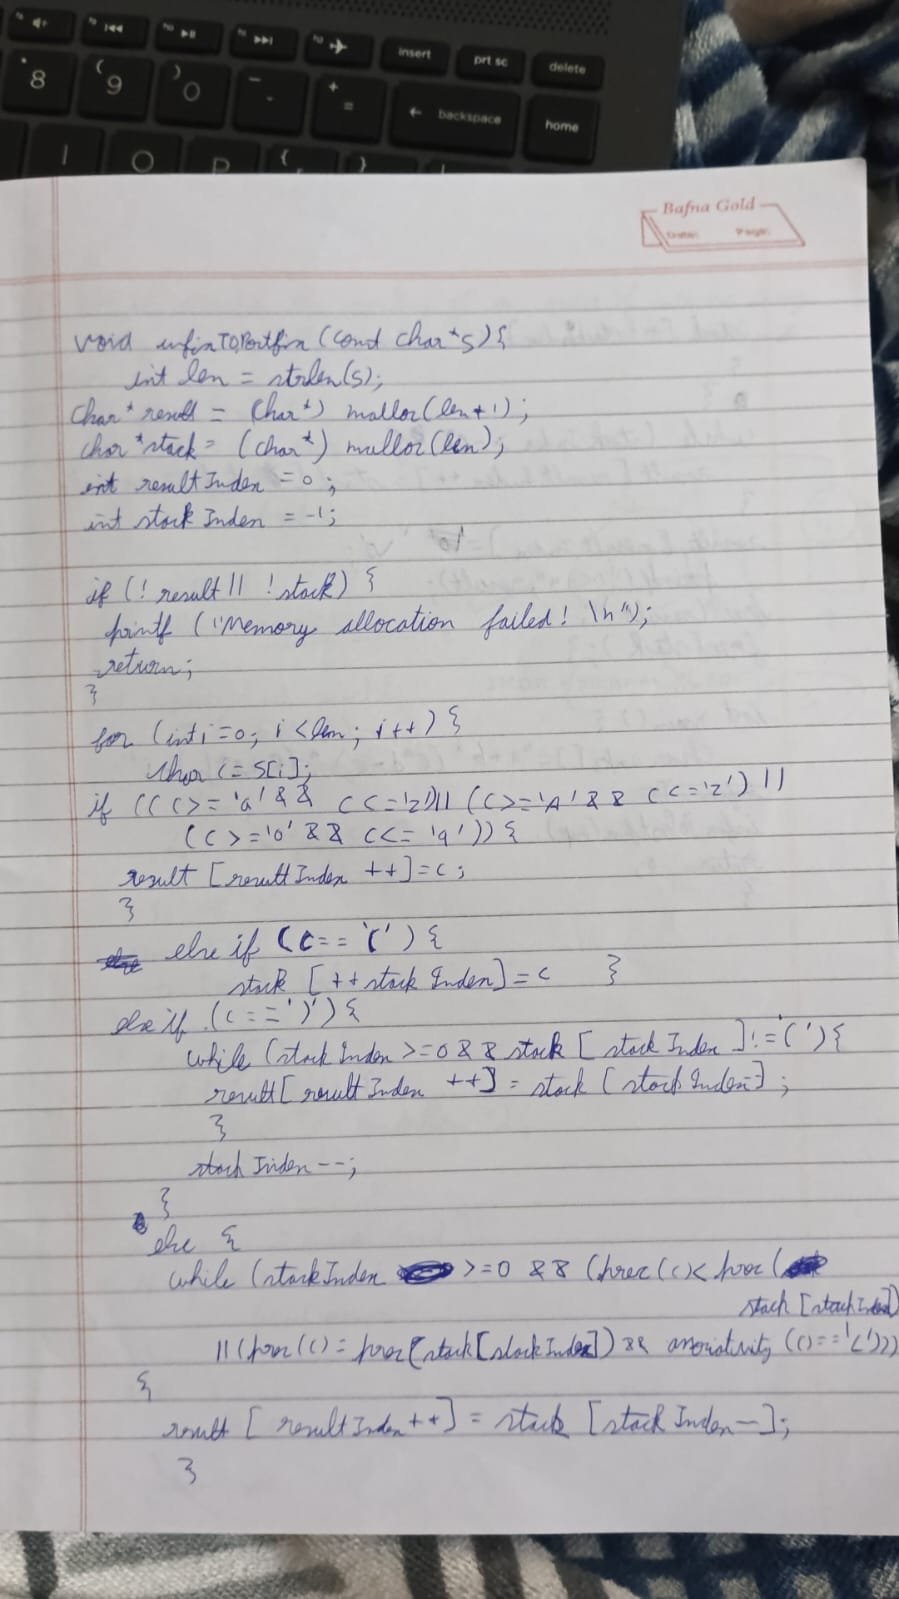 insert
prt sc
delete
8
(
9
)
0
-
+
=
backspace
home
I
O
P
{
}
Bafna Gold
Date: Page:
void infixTOPostfix (const char*s){
int len = strlen(s);
char* result = (char*) malloc(len+1);
char *stack = (char*) malloc(len);
int resultIndex = 0;
int stackIndex = -1;
if (! result || !stack) {
printf ("Memory allocation failed! \n");
return;
}
for (int i=0; i<len; i++) {
char c = s[i];
if ((c>='a' && c<='z')|| (c>='A' && c<='z') ||
(c>='0' && c<='9')) {
result [resultIndex ++]=c;
}
else else if (c=='(') {
stack [++stackIndex]=c }
else if (c==')') {
while (stackIndex >=0 && stack [stackIndex]!='('){
result[resultIndex ++] = stack [stackIndex--];
}
stackIndex--;
}
else {
while (stackIndex >=0 && (prec(c)< prec(
stack [stackIndex])
|| (prec(c)= prec(stack[stackIndex]) && associativity (c)=='L')))
{
result [resultIndex++] = stack [stackIndex--];
}